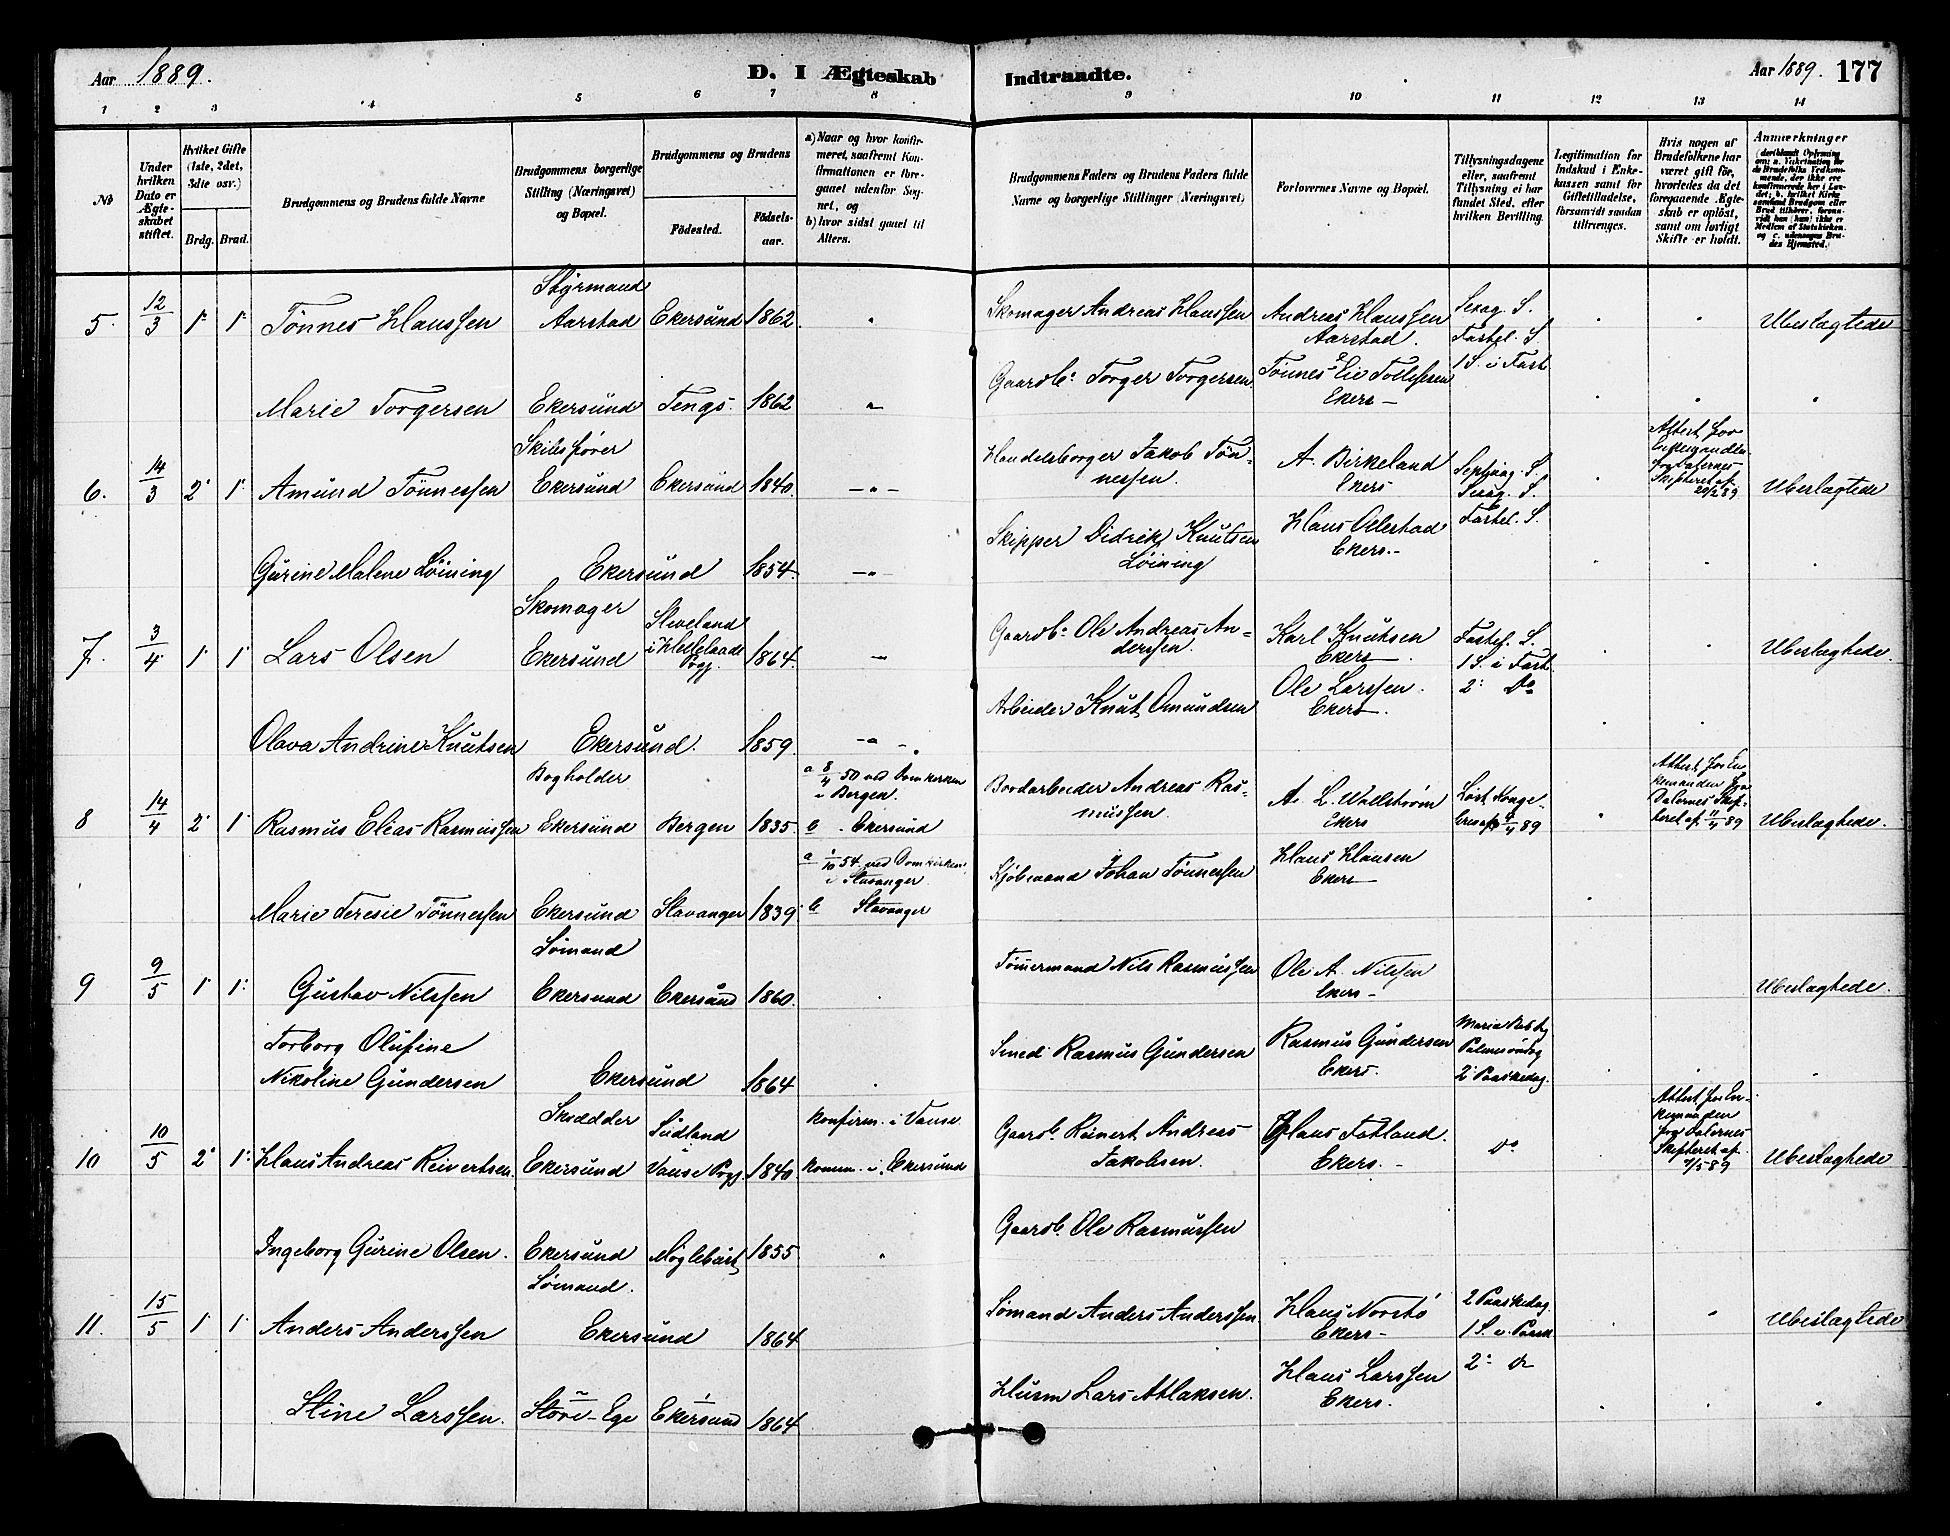 Aar 1889.
D. I Ægteskab Indtraadte.
Aar 1889. 177
1 2 3 4 5 6 7 8 9 10 11 12 13 14
No
Under hvilken Dato er Ægteskabet stiftet.
Hvilket Gifte (1ste, 2det, 3die osv.)
Brdg. Brud.
Brudgommens og Brudens fulde Navne
Brudgommens borgerlige Stilling (Næringsvei) og Bopæl.
Brudgommens og Brudens
Fødested.
Fødsels-aar.
a) Naar og hvor konfirmeret, saafremt Konfirmationen er foregaaet udenfor Sognet, og
b) hvor sidst gaaet til Alters.
Brudgommens Faders og Brudens Faders fulde Navne og borgerlige Stillinger (Næringsvei)
Forlovernes Navne og Bopæl.
Tillysningsdagene eller, saafremt Tillysning ei har fundet Sted, efter hvilken Bevilling.
Legitimation for Indskud i Enkekassen samt for Giftetilladelse, forsaavidt saadan tiltrænges.
Hvis nogen af Brudefolkene har været gift før, hvorledes da det foregaaende Ægteskab er opløst, samt om lovligt Skifte er holdt.
Anmærkninger
5. 12/3 1 1 Tønnes Hanssen Styrmand Aarstad Ekersund 1862. " Skomager Andreas Hanssen Andreas Hanssen Aarstad. Sexag. S. Fastel. S. 1 S. i Fast. Ubeslægtede
Marie Torgersen Ekersund Tengs. 1862 " Gaardb. Torger Torgersen Tønnes Eie Tollefsen Ekers
6. 14/3 2 1 Amund Tønnessen Skibsfører Ekersund Ekersund 1840. " Handelsborger Jakob Tønnessen. A. Birkeland Ekers Septuag. S. Sexag. S. Fastel. S. Attest for Enkemanden fra Dalernes Skifteret af 20/2 89 Ubeslægtede
Gurine Malene Løining Ekersund 1854. " Skipper Didrik Knutsen Løining Hans Ollestad Ekers.
7. 3/4 1 1 Lars Olsen Skomager Ekersund Sleveland i Hellelands Prgj. 1864. " Gaardb. Ole Andreas Anderssen. Karl Knutsen Ekers. Fastel. S. 1 S. i Fast. 2: Do Ubeslægtede.
Olava Andrine Knutsen Ekersund. 1859. " Arbeider Knut Omundsen Ole Larssen. Ekers.
8 14/4 2 1 Rasmus Elias Rasmussen Bogholder Ekersund Bergen 1835. a 8/4 50 ved Domkirken i Bergen. b. Ekersund Bordarbeider Andreas Rasmussen. A. L. Wallstrøm Ekers Løst Kongebrev af 9/4 89 Attest for Enkemanden fra Dalernes Skifteret af 11/4 89 Ubeslægtede.
Marie Teresie Tønnessen Ekersund Stavanger 1839. a 1/10 54. ved Domkirken i Stavanger. b Stavanger Kjøbmand Johan Tønnessen Hans Hansen Ekers
9 9/5 1 1. Gustav Nilssen Sømand Ekersund Ekersund 1860. Tømmermand Nils Rasmussen Ole A. Nilssen Ekers Ubeslægtede.
Torborg Olufine Nikoline Gundersen Ekersund 1864 Smed Rasmus Gundersen Rasmus Gundersen Ekers. Maria Bebd. Palmesøndag 2 Paaskedag.
10 10/5 2 1. Hans Andreas Reivertsen Skrædder Ekersund Sudland Vanse Prgj. 1840. konfirm. i Vanse komm. i Ekersund Gaardb. Reinert Andreas Jakobsen. Hans Fotland. Ekers. Do Attest for Enkemanden fra Dalernes Skifteret af 7/5 89 Ubeslægtede
Ingeborg Gurine Olsen. Ekersund Møglebust 1855 Gaardb. Ole Rasmussen
11. 15/5 1 1 Anders Anderssen Sømand. Ekersund 1864 Sømand Anders Anderssen. Hans Norstø Ekers 2 Paaskedag. 1 S. e. Paask. 2: Do Ubeslægtede
Stine Larssen. Store-Ege Ekersund 1864 Husm Lars Atlaksen. Hans Larssen Ekers.